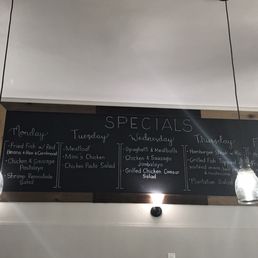 SPECIALS
Monday
• Fried Fish w/ Red
Beans & Rice & Cornbread
• Chicken & Sausage
Pastalaya
• Shrimp Remoulade
Salad
Tuesday
• Meatloaf
• Mimi's Chicken
• Chicken Pasta Salad
Wednesday
• Spaghetti & Meatballs
• Chicken & Sausage
Jambalaya
• Grilled Chicken Caesar
Salad
Thursday
• Hamburger Steak w/
• Grilled Fish
• Plantation Salad